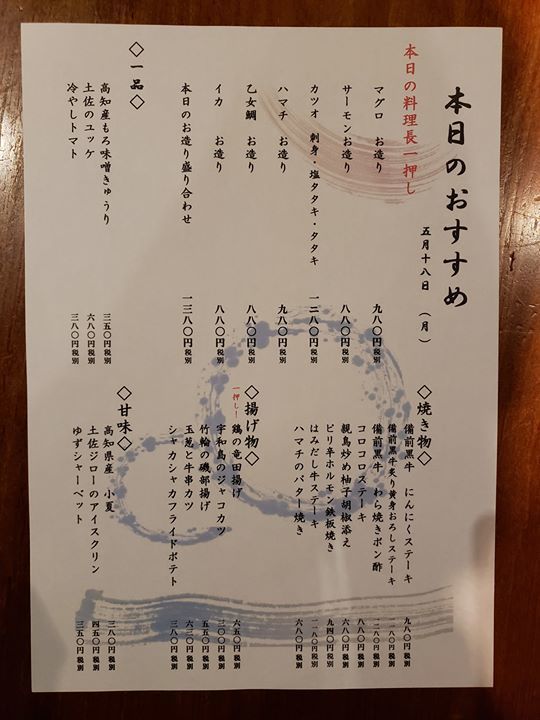 本日のおすすめ
五月十八日 (月)
本日の料理長一押し
マグロ お造り 九八〇円税別
サーモンお造り 八八〇円税別
カツオ 刺身・塩タタキ・タタキ 一二八〇円税別
ハマチ お造り 九八〇円税別
乙女鯛 お造り 八八〇円税別
イカ お造り 八八〇円税別
本日のお造り盛り合わせ 一三八〇円税別
◇一品◇
高知産もろ味噌きゅうり 三五〇円税別
土佐のユッケ 六八〇円税別
冷やしトマト 三八〇円税別
◇焼き物◇
備前黒牛 にんにくステーキ 九八〇円税別
備前黒牛炙り黄身おろしステーキ 一〇八〇円税別
備前黒牛 わら焼きポン酢 一二八〇円税別
コロコロステーキ 八八〇円税別
親鳥炒め柚子胡椒添え 六八〇円税別
ピリ辛ホルモン鉄板焼き 九四〇円税別
はみだし牛ステーキ 一一八〇円税別
ハマチのバター焼き 六八〇円税別
◇揚げ物◇
一押し!
鶏の竜田揚げ 六五〇円税別
宇和島のジャコカツ 三〇〇円税別
竹輪の磯部揚げ 五五〇円税別
玉葱と牛串カツ 六三〇円税別
シャカシャカフライドポテト 三八〇円税別
◇甘味◇
高知県産 小夏 三八〇円税別
土佐ジローのアイスクリン 四五〇円税別
ゆずシャーベット 三五〇円税別